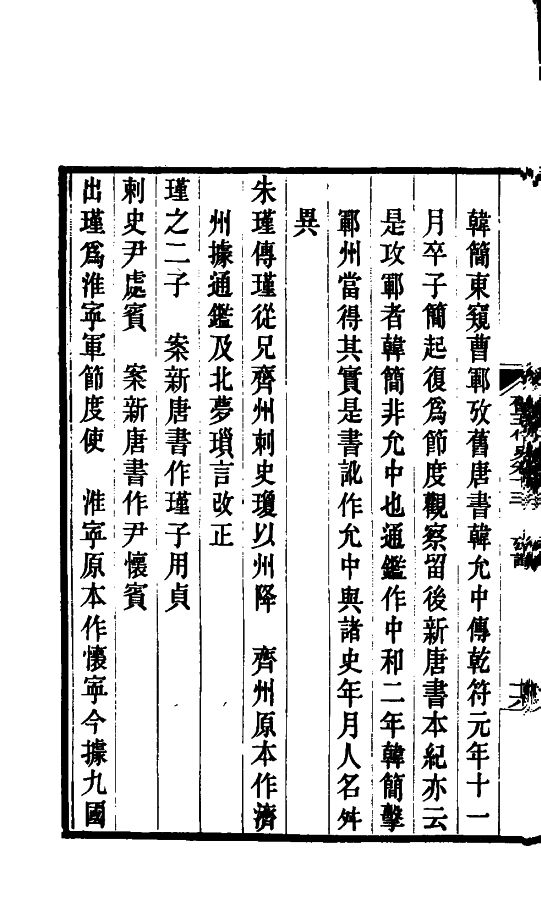 韓簡東窺曹鄆攷舊唐書韓允中傳乾符元年十一
月卒子簡起復爲節度觀察留後新唐書本紀亦云
是攻鄆者韓簡非允中也通鑑作中和二年韓簡擊
鄆州當得其實是書訛作允中與諸史年月人名舛
異
朱瑾傳瑾從兄齊州刺史瓊以州降　齊州原本作濟
州據通鑑及北夢瑣言改正
瑾之二子　案新唐書作瑾子用貞
刺史尹處賓　案新唐書作尹懷賓
出瑾爲淮寧軍節度使　淮寧原本作懷寧今據九國